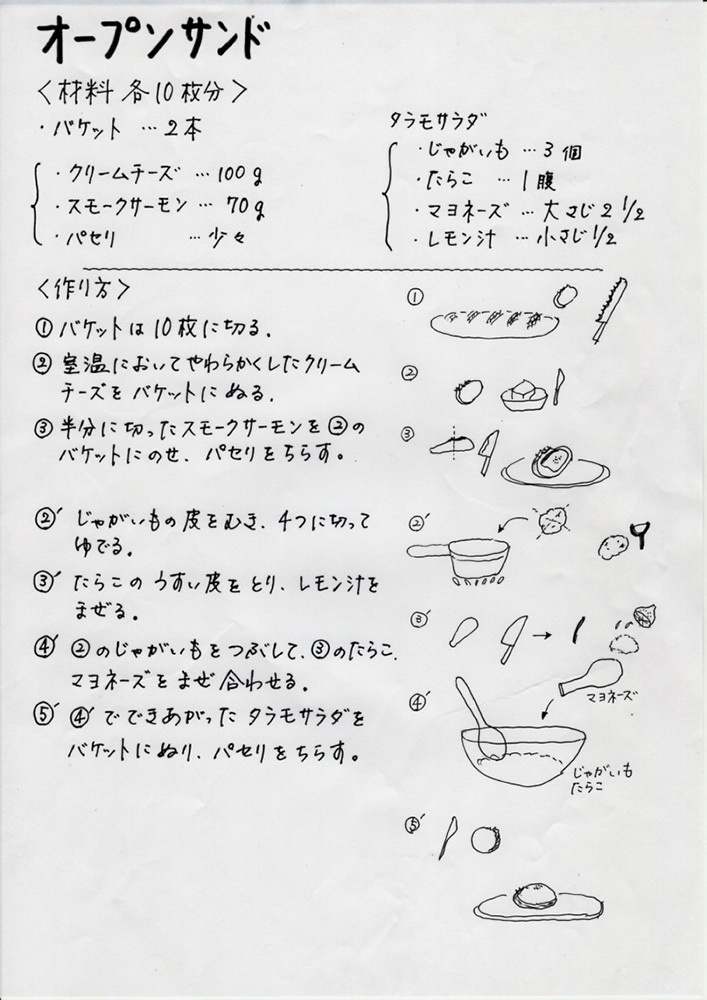 オープンサンド
〈材料 各10枚分〉
・バケット …2本
・クリームチーズ …100g
・スモークサーモン …70g
・パセリ …少々
タラモサラダ
・じゃがいも …3個
・たらこ …1腹
・マヨネーズ …大さじ2 1/2
・レモン汁 …小さじ1/2
〈作り方〉
① バケットは10枚に切る.
② 室温においてやわらかくしたクリーム
チーズをバケットにぬる.
③ 半分に切ったスモークサーモンを②の
バケットにのせ、パセリをちらす。
②′ じゃがいもの皮をむき、4つに切って
ゆでる。
③′ たらこのうすい皮をとり、レモン汁を
まぜる。
④′ ②のじゃがいもをつぶして、③のたらこ、
マヨネーズをまぜ合わせる。
⑤′ ④′でできあがったタラモサラダを
バケットにぬり、パセリをちらす。
①
②
③
②′
③′
④′
マヨネーズ
じゃがいも
たらこ
⑤′